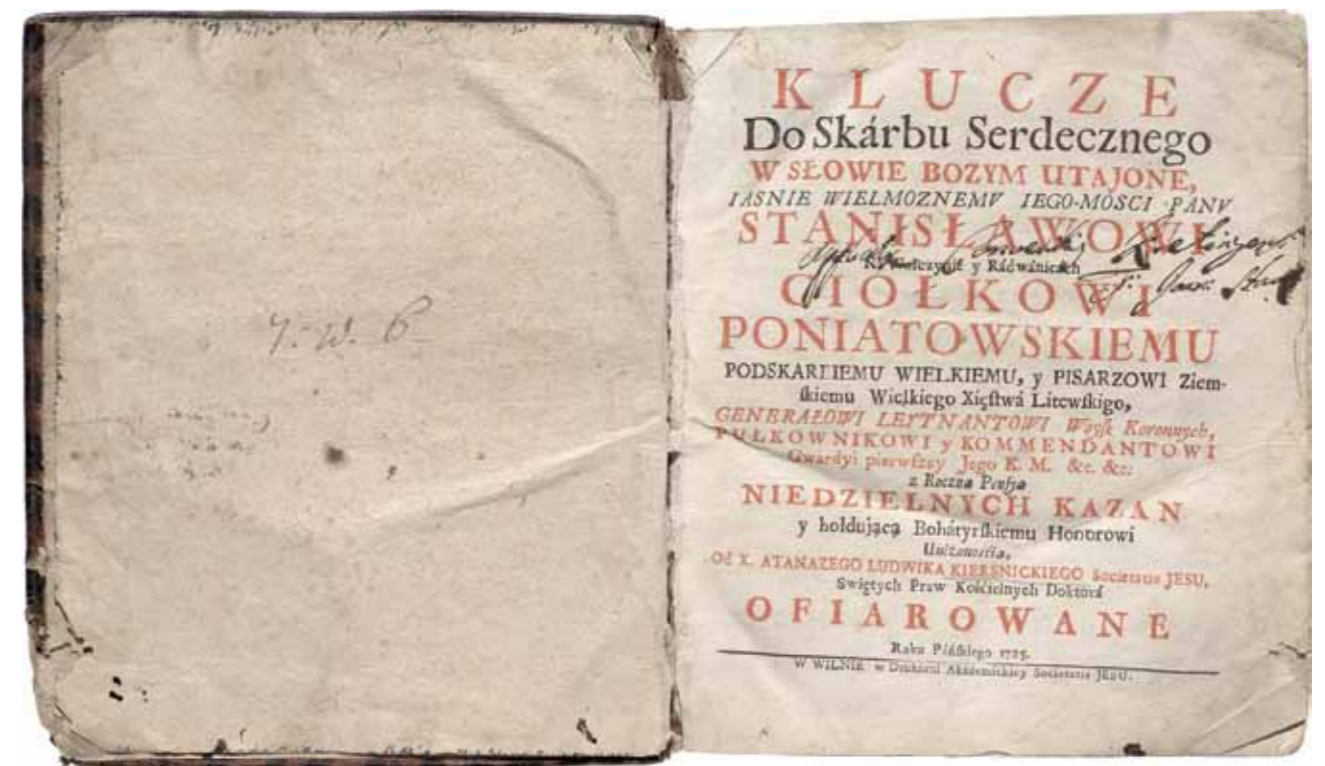 7. W. P
KLUCZE
Do Skárbu Serdecznego
W SŁOWIE BOZYM UTAJONE,
IASNIE WIELMOZNEMV IEGO-MOSCI PANV
STANISŁAWOWI
y Rádwánicách
CIOŁKOWI
PONIATOWSKIEMU
PODSKARBIEMU WIELKIEMU, y PISARZOWI Ziem-
ſkiemu Wielkiego Xięſtwá Litewſkigo,
GENERAŁOWI LEYTNANTOWI Woyſk Koronnych,
PUŁKOWNIKOWI y KOMMENDANTOWI
Gwardyi pierwſzey Jego K. M. &c. &c:
z Roczną Penſyą
NIEDZIELNYCH KAZAN
y hołdującą Bohátyrſkiemu Honorowi
Unizonością,
Od X. ATANAZEGO LUDWIKA KIERSNICKIEGO Societatis JESU,
Swiętych Praw Kościelnych Doktorá
OFIAROWANE
Roku Páńſkiego 1725.
W WILNIE w Drukárni Akádemickiey Societatis JESU.